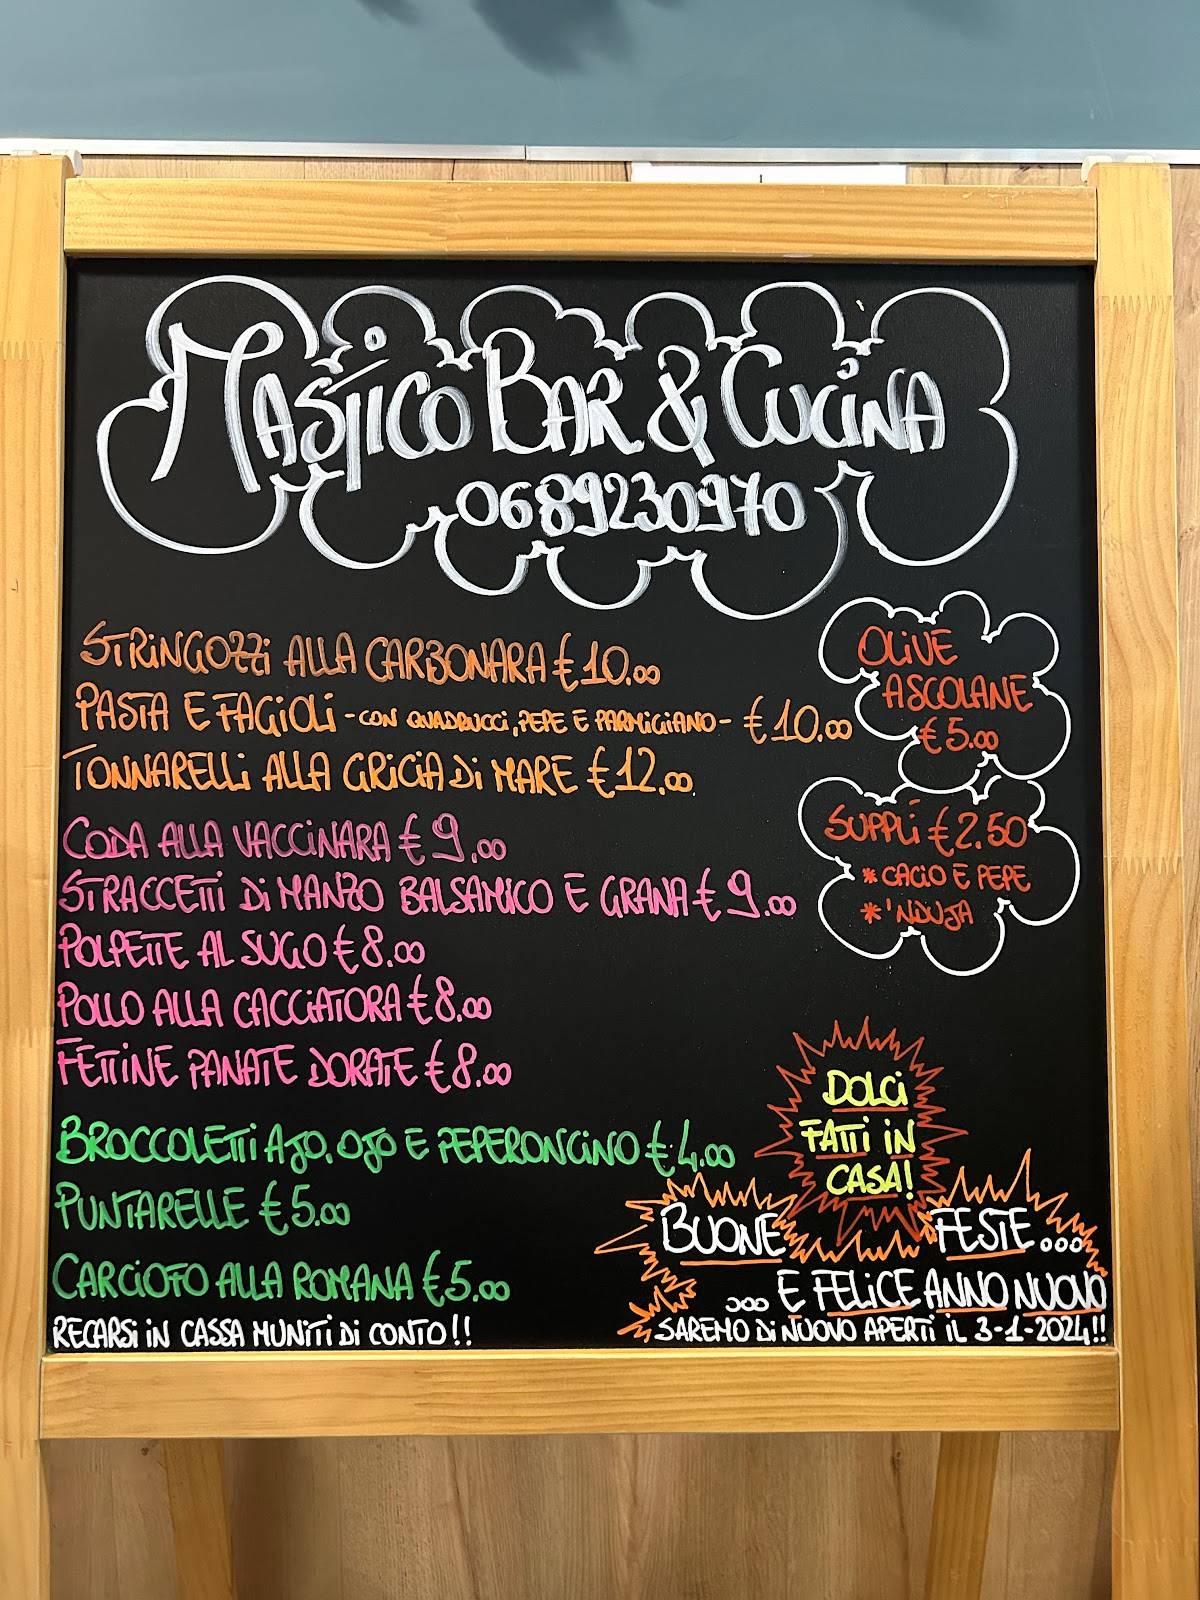 MASTICO BAR & CUCINA
0689230970
STRINGOZZI ALLA CARBONARA €10.00
PASTA E FAGIOLI - CON QUADRUCCI, PEPE E PARMIGIANO - €10.00
TONNARELLI ALLA GRICIA DI MARE €12.00
CODA ALLA VACCINARA €9.00
STRACCETTI DI MANZO BALSAMICO E GRANA €9.00
POLPETTE AL SUGO €8.00
POLLO ALLA CACCIATORA €8.00
FETTINE PANATE DORATE €8.00
BROCCOLETTI AJO, OJO E PEPERONCINO €4.00
PUNTARELLE €5.00
CARCIOFO ALLA ROMANA €5.00
RECARSI IN CASSA MUNITI DI CONTO!!
OLIVE
ASCOLANE
€5.00
SUPPLÌ €2.50
* CACIO E PEPE
* 'NDUJA
DOLCI
FATTI IN
CASA!
BUONE FESTE...
... E FELICE ANNO NUOVO
SAREMO DI NUOVO APERTI IL 3-1-2024!!